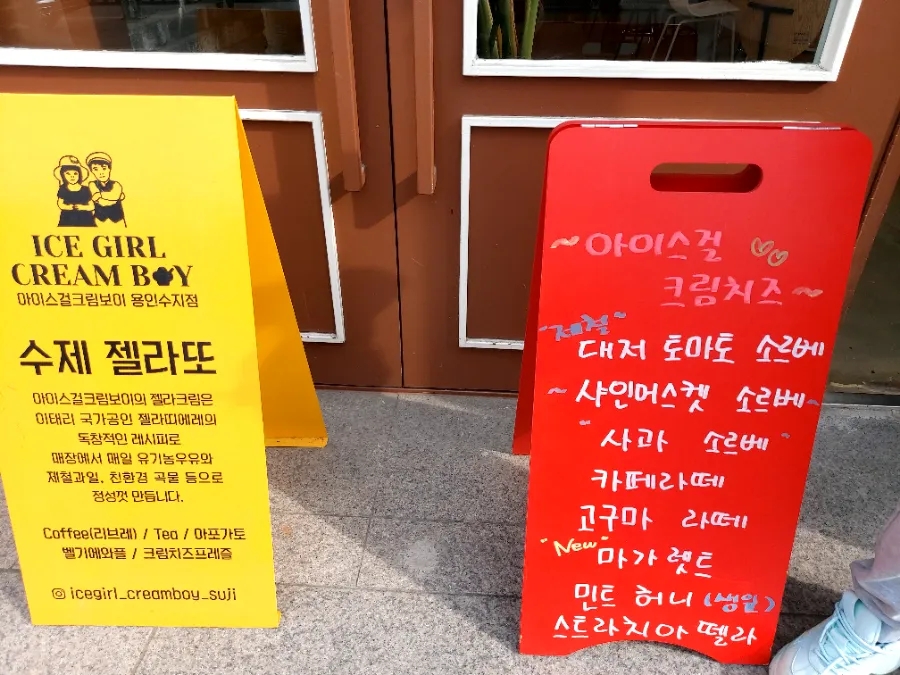 ICE GIRL
CREAM BOY
아이스걸크림보이 용인수지점
수제 젤라또
아이스걸크림보이의 젤라크림은
이태리 국가공인 젤라띠에레의
독창적인 레시피로
매장에서 매일 유기농우유와
제철과일, 친환경 곡물 등으로
정성껏 만듭니다.
Coffee(리브레) / Tea / 아포가토
벨기에와플 / 크림치즈프레즐
icegirl_creamboy_suji
~아이스걸
크림치즈~
"제철"
대저 토마토 소르베
~샤인머스켓 소르베~
"사과 소르베"
카페라떼
고구마 라떼
"New" 마가렛트
민트 허니 (생잎)
스트라치아 뗄라